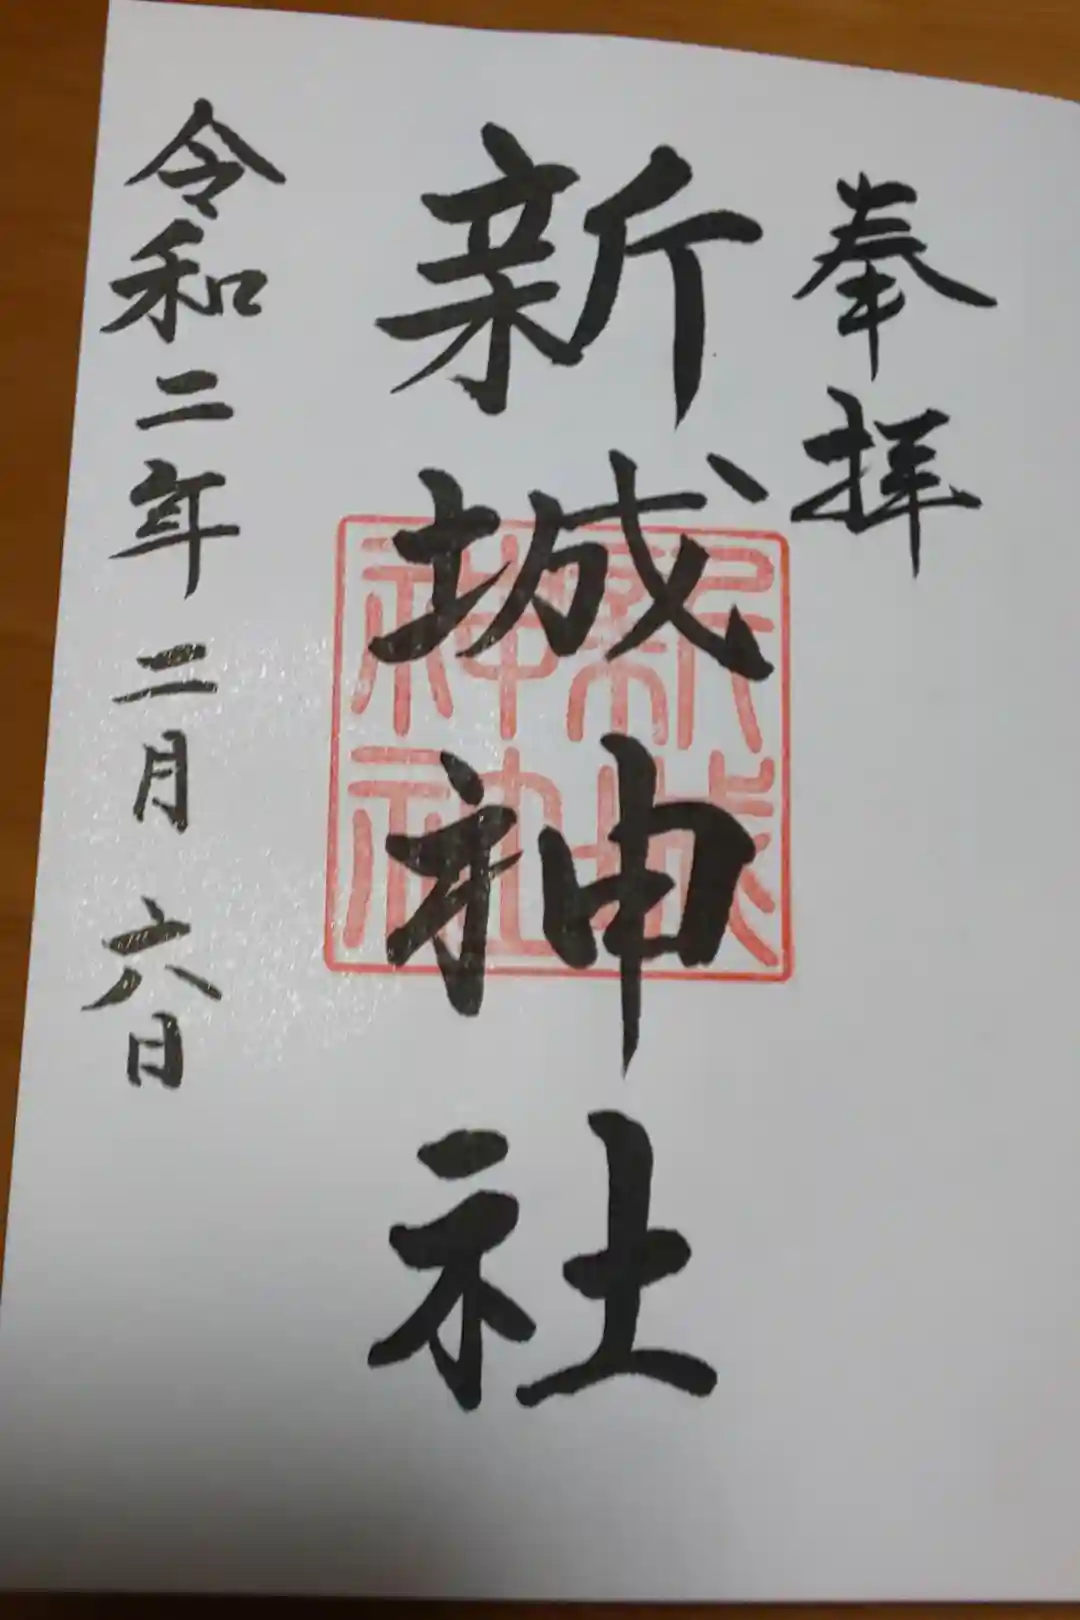 奉拝
新城神社
新城
神社
令和二年二月六日